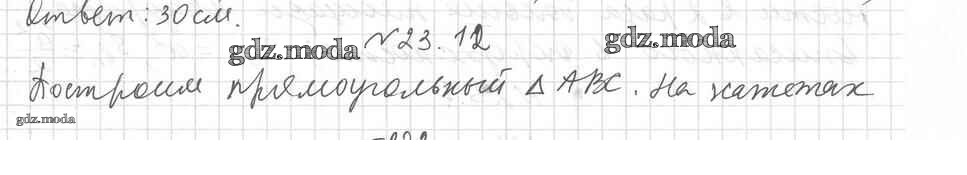 Ответ: 30 см.
gdz.moda № 23.12 gdz.moda
Построим прямоугольный Δ ABC. На катетах
gdz.moda